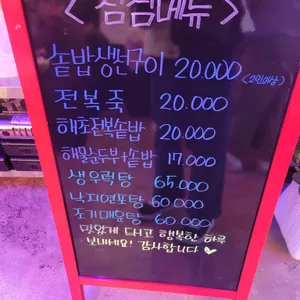 <점심메뉴>
솥밥생선구이 20.000 <2인이상>
전복죽 20.000
해초전복솥밥 20.000
해물순두부+솥밥 17.000
생우럭탕 65.000
낙지연포탕 60.000
조기매운탕 60.000
맛있게 드시고 행복한 하루
보내세요! 감사합니다 ♡